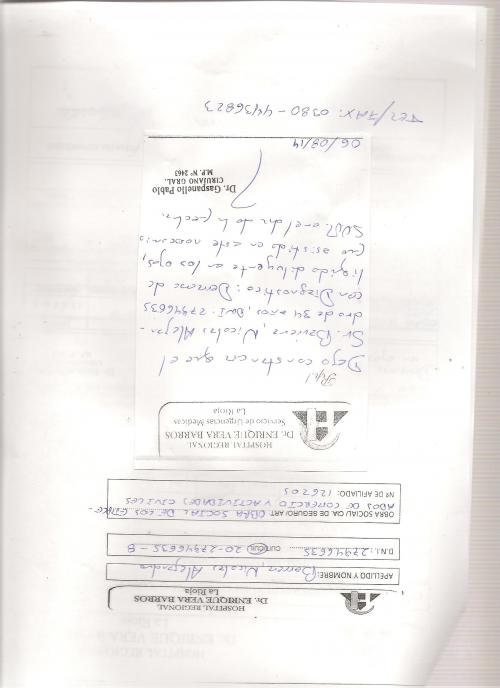 HOSPITAL REGIONAL
Dr. ENRIQUE VERA BARROS
La Rioja
APELLIDO Y NOMBRE: Nicolas Alejandro
D.N.I.: 27946635 CUIT/CUIL 20-27946635-8
OBRA SOCIAL/ CIA. DE SEGURO/ ART: OBRA SOCIAL DE LOS EMPLE-
ADOS DE COMERCIO Y ACTIVIDADES CIVILES
Nº DE AFILIADO: 126205
HOSPITAL REGIONAL
Dr. ENRIQUE VERA BARROS
Servicio de Urgencias Medicas
La Rioja
Dejo constancia que el
Sr. Nicolas Alejan-
dro de 34 años, DNI. 27946635
con Diagnostico: Derrame de
liquido diluyente en los ojos,
fue asistido en este nosocomio
en el dia de la fecha.
Dr. Gaspanello Pablo
CIRUJANO GRAL.
M.P. Nº 2463
06/08/14
TEL/FAX: 0380-4436823